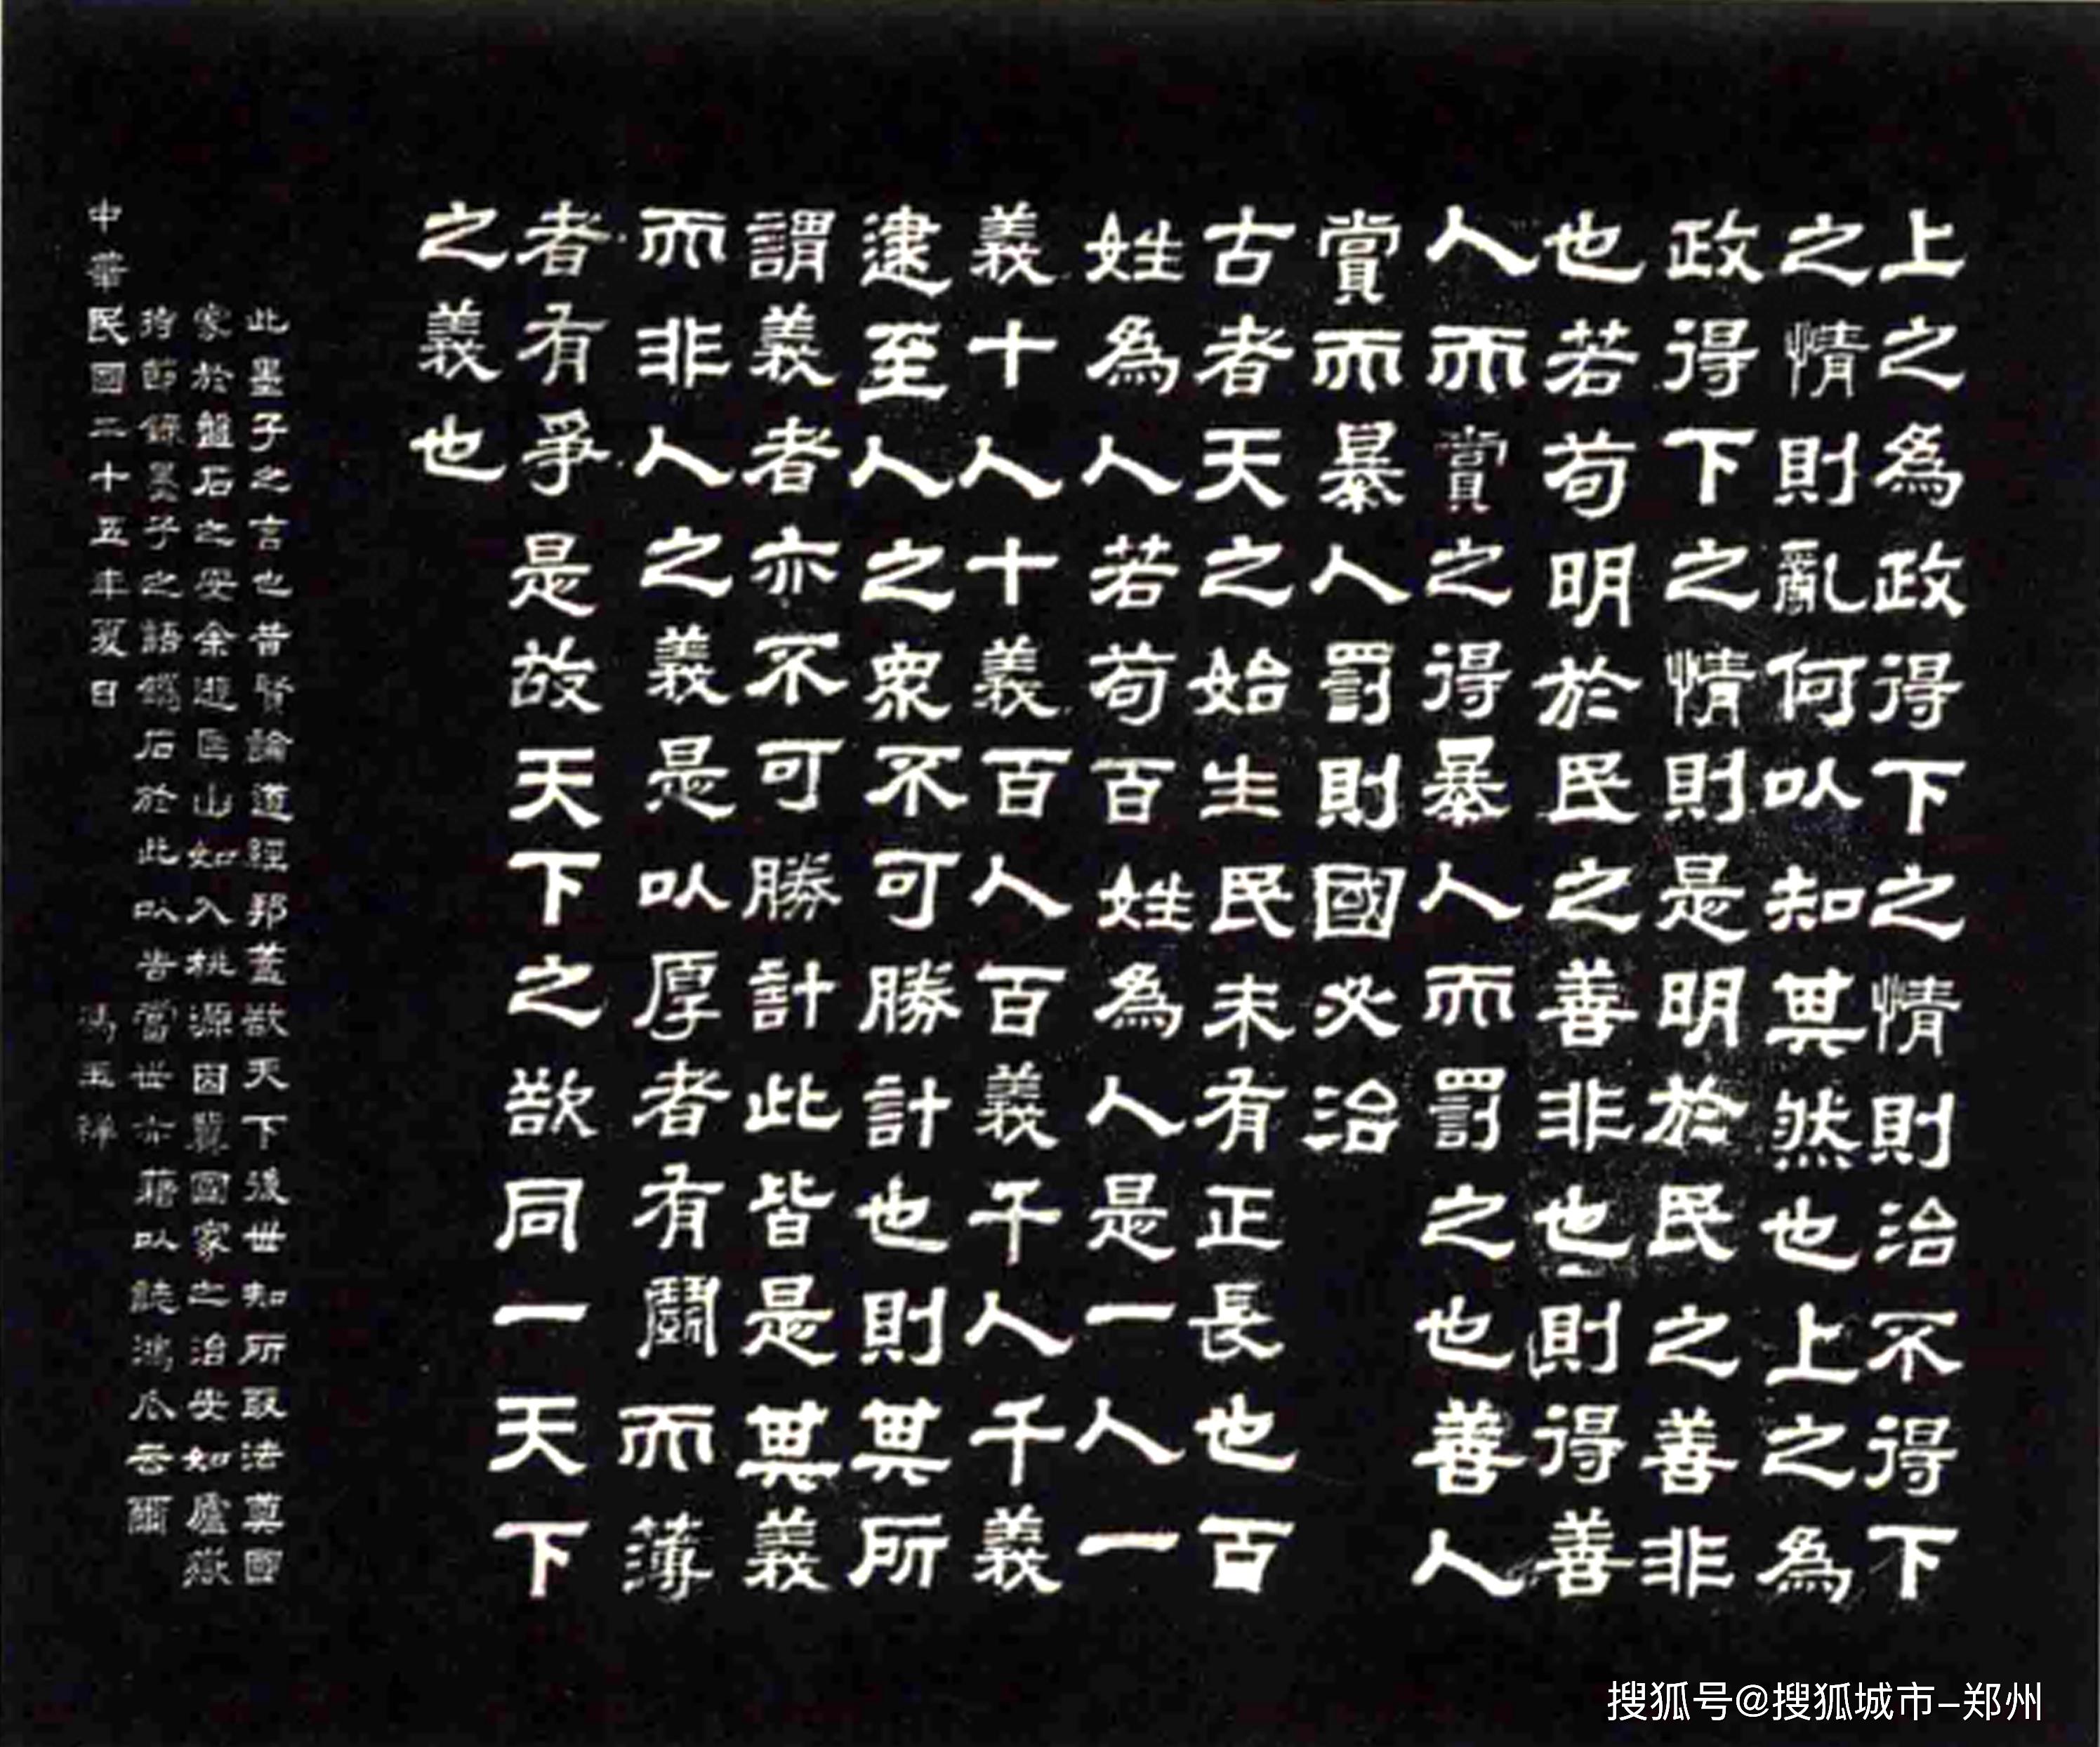 上之為政得下之情則治不得下
之情則亂何以知其然也上之為
政得下之情則是明於民之善非
也若苟明於民之善非也則得善
人而賞之得暴人而罰之也善人
賞而暴人罰則國必治
古者天之始生民未有正長也百
姓為人若苟百姓為人是一人一
義十人十義百人百義千人千義
逮至人之衆不可勝計也則其所
謂義者亦不可勝計此皆是其義
而非人之義是以厚者有鬭而薄
者有爭是故天下之欲同一天下
之義也
此墨子之言也昔賢論道經邦蓋欲天下後世知所取法奠國
家於盤石之安余遊匡山如入桃源因冀國家之治安如廬嶽
特節錄墨子之語鐫石於此以告當世亦藉以誌鴻爪云爾
中華民國二十五年夏日 馮玉祥
搜狐号@搜狐城市-郑州